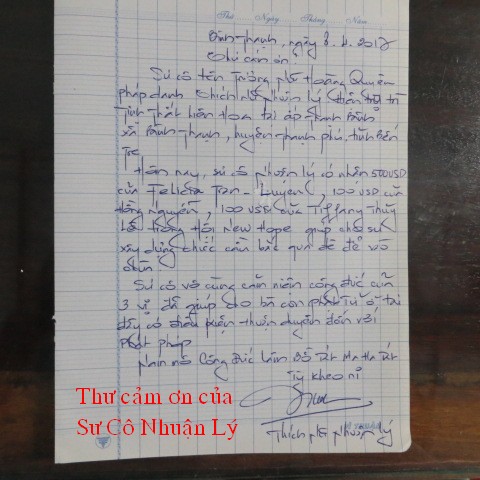 Thứ Ngày Tháng Năm
Bình Thạnh, ngày 8. 4. 2017
Thư cảm ơn!
Sư cô tên Trương Thị Hoàng Quyên
pháp danh Thích nữ Nhuận Lý hiện trụ trì
Tịnh Thất Liên Hoa tại ấp Thạnh Bình
xã Bình Thạnh, huyện Thạnh phú, tỉnh Bến
Tre
Hôm nay, sư cô Nhuận Lý có nhận 500USD
của Felicia Tran - Luyến, 100 USD của
Hồng Nguyễn, 100 USD của Tiffany Thúy
trong hội New Hope giúp cho sư
xây dựng chiếc cầu bắc qua đê để vô
chùa
Sư cô vô cùng cảm niệm công đức của
3 vị đã giúp cho bà con phật Tử ở tại
đây có điều kiện thuận duyên đến với
phật pháp
Nam mô Công Đức Lâm Bồ Tát Ma Ha Tát
Tỳ kheo ni
Thích nữ Nhuận Lý
Thư cảm ơn của
Sư Cô Nhuận Lý